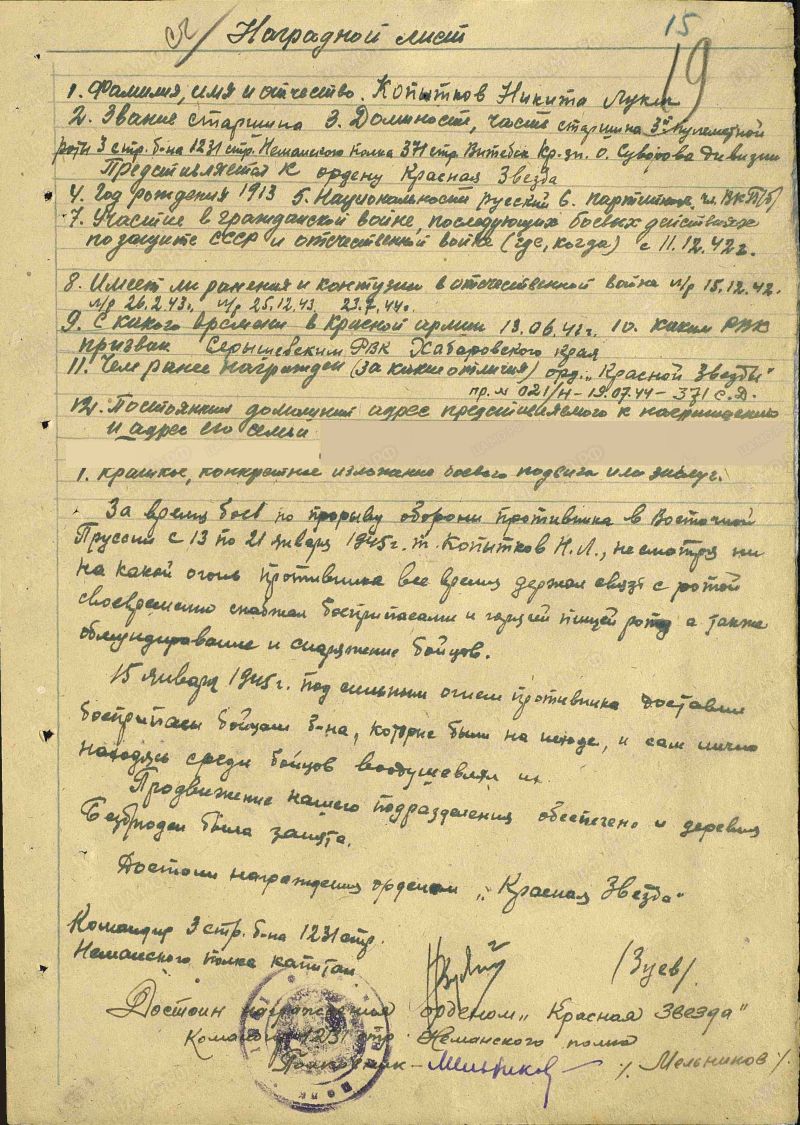 15
19
Наградной лист
1. Фамилия, имя и отчество. Копытков Никита Лукич
2. Звание старшина 3. Должность, часть старшина 3й пулеметной
роты 3 стр. б-на 1231 стр. Неманского полка 371 стр. Витебск. Кр-зн. о. Суворова дивизии
Представляется к ордену Красная Звезда
4. Год рождения 1913 5. Национальность русский 6. партийность чл. ВКП/б/
7. Участие в гражданской войне, последующих боевых действиях
по защите СССР и отечественной войне (где, когда) с 11.12.42г.
8. Имеет ли ранения и контузии в отечественной войне л/р 15.12.42.
л/р 26.2.43г, л/р 25.12.43 23.7.44г.
9. С какого времени в Красной армии 13.06.41г. 10. каким РВК
призван Серышевским РВК Хабаровского края
11. Чем ранее награжден (за какие отличия) орд. „Красной Звезды"
пр. № 021/н - 19.07.44 - 371 с.д.
12. Постоянный домашний адрес представляемого к награждению
и адрес его семьи
1. краткое, конкретное изложение боевого подвига или заслуг.
За время боев по прорыву обороны противника в Восточной
Пруссии с 13 по 21 января 1945г. т. Копытков Н.Л., несмотря ни
на какой огонь противника все время держал связь с ротой
своевременно снабжал боеприпасами и горячей пищей роту а также
обмундирование и снаряжение бойцов.
15 января 1945г. под сильным огнем противника доставил
боеприпасы бойцам б-на, которые были на исходе, и сам лично
находясь среди бойцов воодушевлял их.
Продвижение нашего подразделения обеспечено и деревня
была занята.
Достоин награждения орденом „Красная Звезда"
Командир 3 стр. б-на 1231 стр.
Неманского полка капитан /Зуев/
Достоин награждения орденом „Красная Звезда"
Командир 1231 стр Неманского полка
Подполковник - Мельников /Мельников/